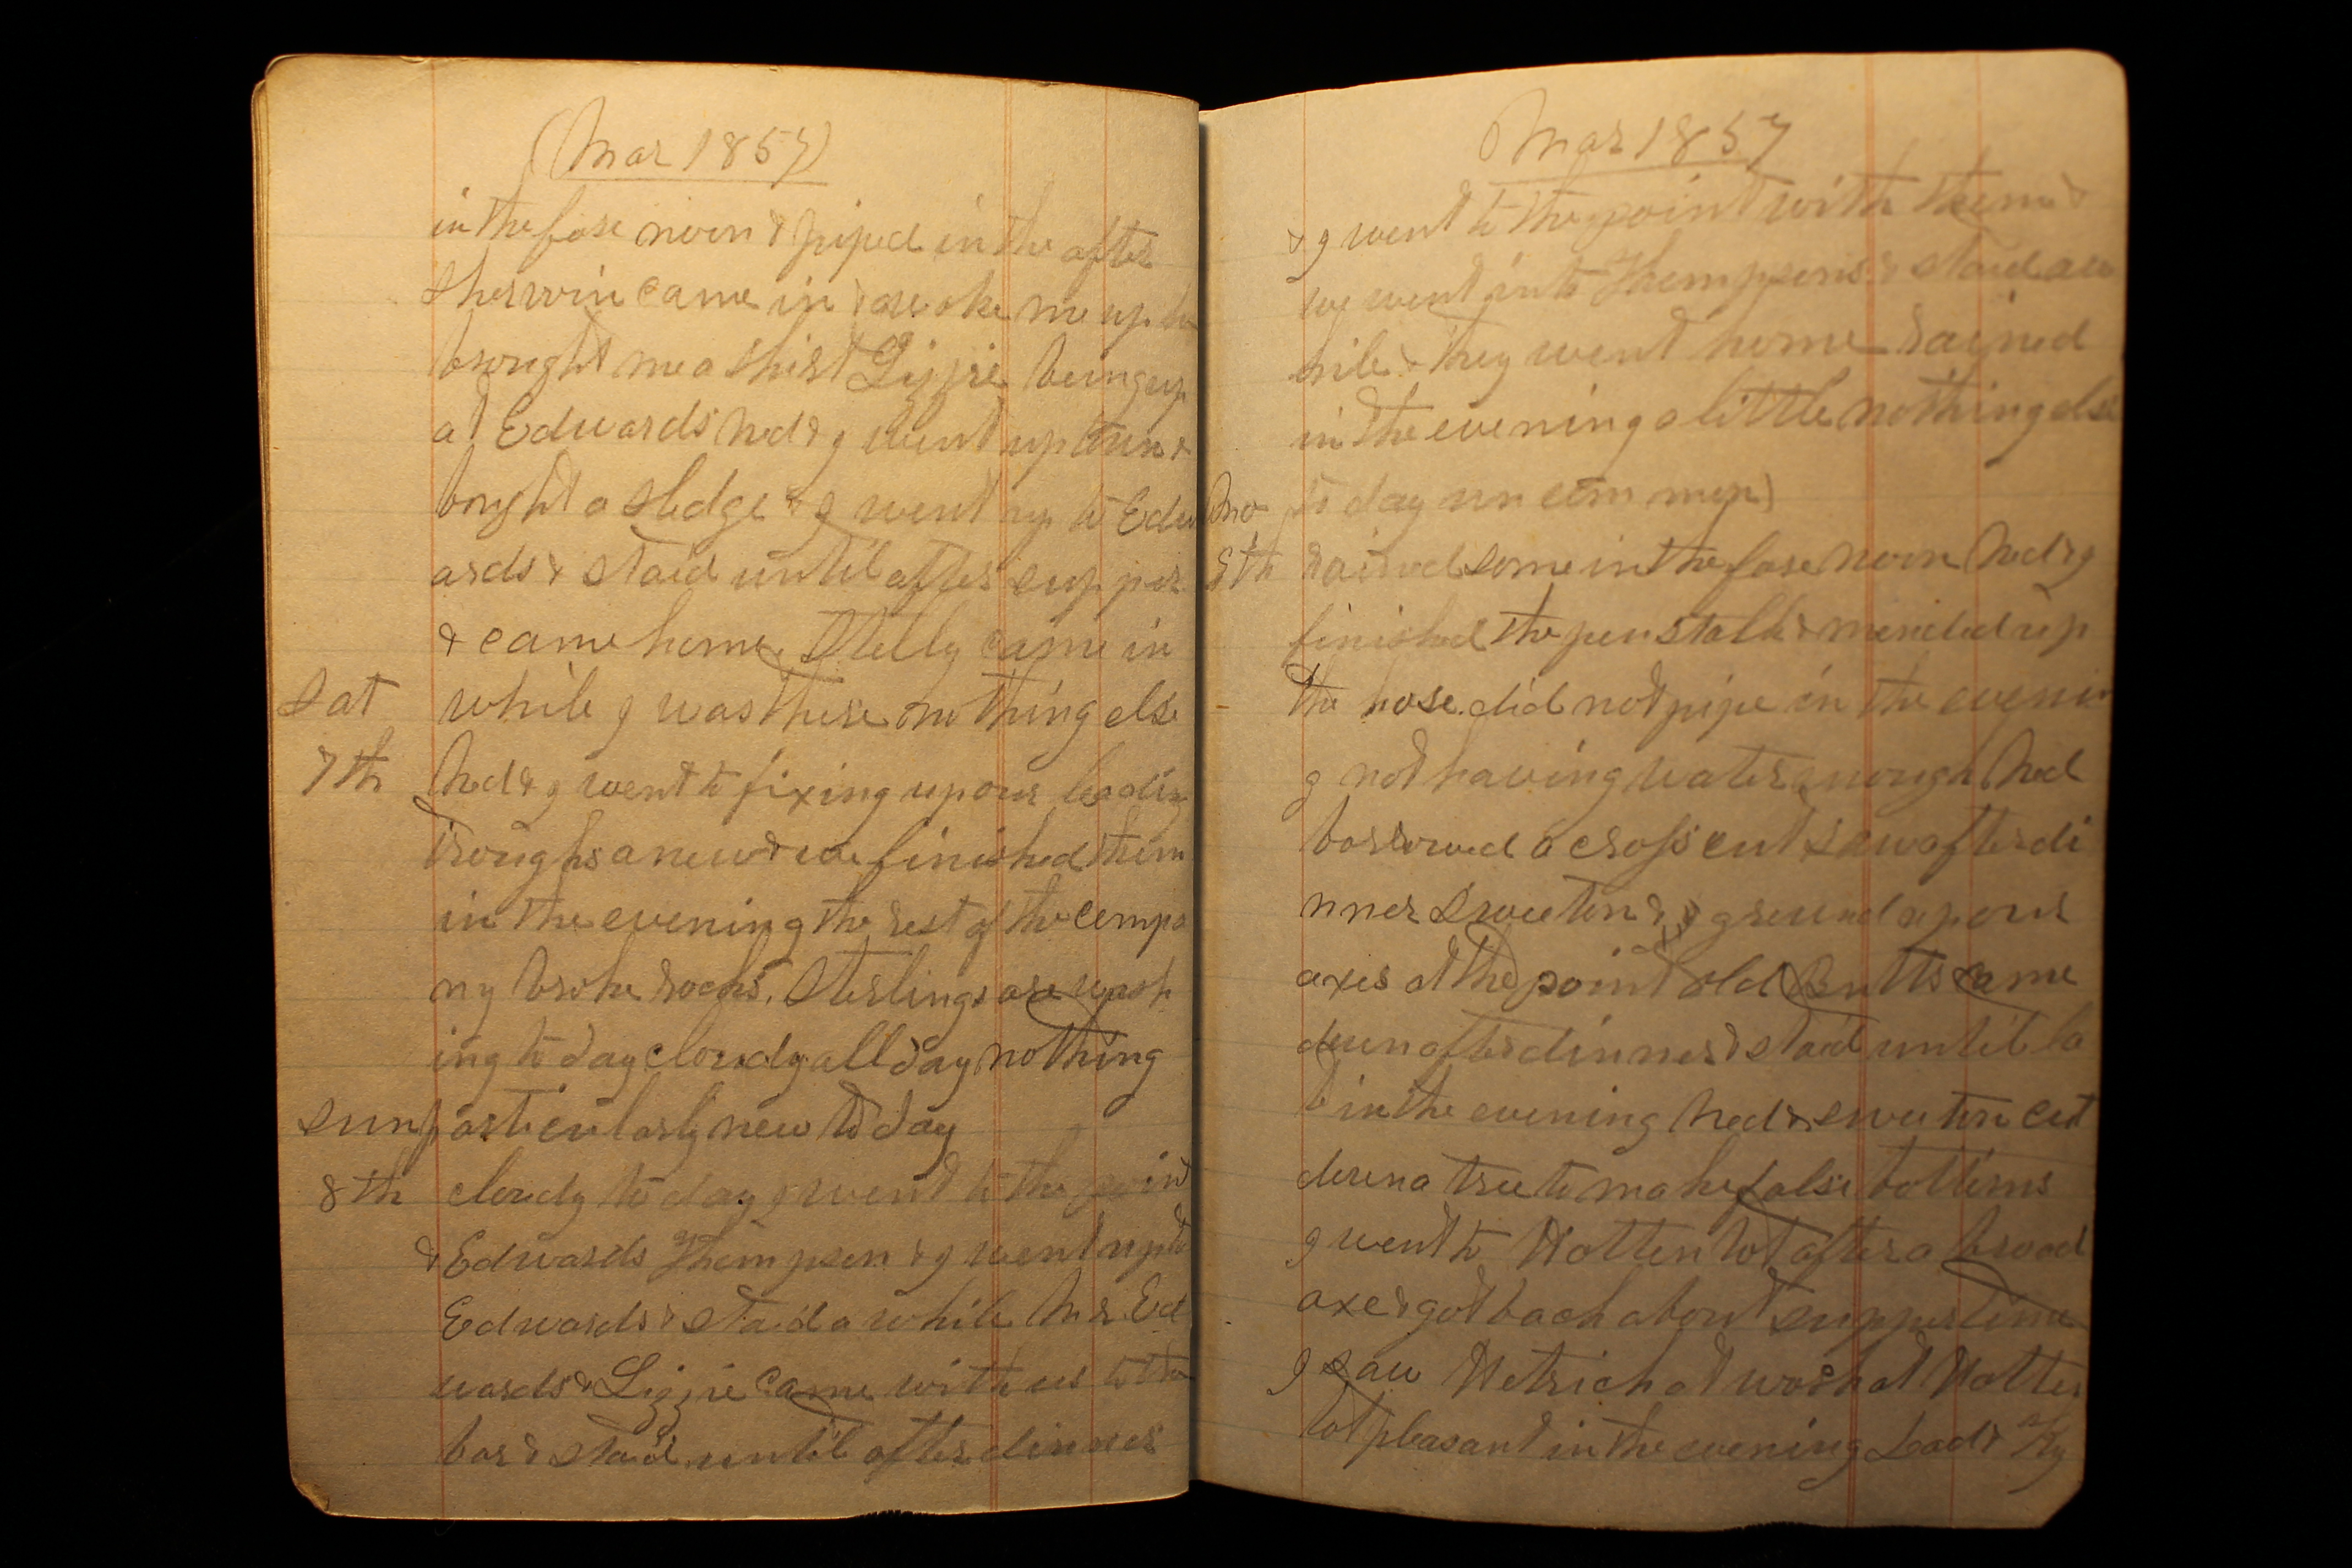 (Mar 1857)
in the fore noon & piped in the after
Sherwin came in & awoke me up he
brought me a shirt Lizzie being up
at Edwards Ned & I went up town &
bought a sledge & I went up to Edw
ards & staid until after supper
& came home. Stelly came in
Sat while I was there nothing else
7th Ned & I went to fixing up our leading
troughs anew & we finished them
in the evening the rest of the compa
ny broke rocks. Sterlings are wash
ing to day cloudy all day nothing
Sun particularly new to day
8th cloudy to day I went to the point
& Edwards Thompson & I went up to
Edwards & staid a while Mr. Ed
wards & Lizzie came with us to the
bar & staid until after dinner
Mar 1857
& I went to the point with them &
we went into Thompsons & staid aw
hile & they went home rained
in the evening a little nothing else
Mo to day uncommon)
9th rained some in the fore noon Ned & I
finished the penstalk & mended up
the hose did not pipe in the evenin
g not having water enough Ned
borrowed a cross cut saw after di
nner Sweeten & I ground up our
axes at the point old Butts came
down after dinner & staid until la
t in the evening Ned & Sweeten cut
down a tree to make false bottoms
I went to Hottentot after a broad
axe & got back about supper time
I saw Hetrich at work at Hotten
tot pleasant in the evening Lad & Hy